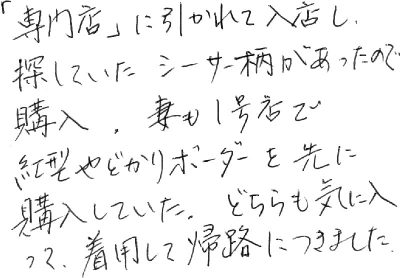 「専門店」に引かれて入店し、
探していた シーサー柄があったので
購入、妻も1号店で
紅型やどかりボーダーを先に
購入していた。どちらも気に入
って、着用して帰路につきました。